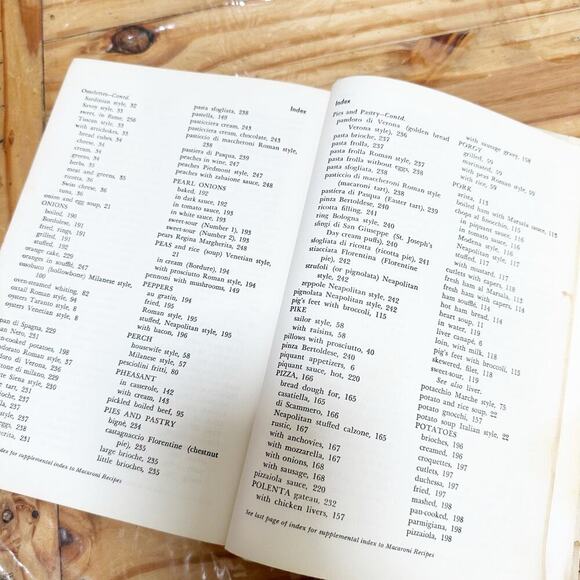 Index
Omelettes—Contd.
Sardinian style, 32
Savoy style, 33
sweet, in flame, 256
Tuscan style, 33
with artichokes, 33
bread cubes, 34
cheese, 34
cream, 34
greens, 34
herbs, 33
meat and greens, 35
ricotta, 36
Swiss cheese, 36
tuna, 36
onion and egg soup, 21
ONIONS
boiled, 190
Bordoline, 191
fried, rings, 191
grilled, 191
stuffed, 192
orange cake, 229
oranges in soufflé, 247
ossobuco (hollowbone) Milanese style,
oven-steamed whiting, 82
oxtail Roman style, 94
oysters Taranto style, 8
oysters Venetian style, 8
pan di Spagna, 229
pan Nero, 231
pan-cooked potatoes, 198
pandorato Roman style, 37
pandoro di Verona, 236
panettone di milano, 229
style, 231
tart, 231
style, 237
style, 237
235
231
pasta sfogliata, 238
pastella, 149
pasticciera cream, 243
pasticciera cream, chocolate, 243
pasticcio di maccheroni Roman style,
238
pastiera di Pasqua, 239
peaches in wine, 247
peaches Piedmont style, 247
peaches with zabaione sauce, 247
PEARL ONIONS
baked, 192
in dark sauce, 192
in tomato sauce, 193
in white sauce, 193
sweet-sour (Number 1), 193
sweet-sour (Number 2), 193
pears Regina Margherita, 248
PEAS and rice (soup) Venetian style,
21
in cream (Bordure), 194
with prosciutto Roman style, 194
pennoni with mushrooms, 149
PEPPERS
au gratin, 194
fried, 195
Roman style, 195
stuffed, Neapolitan style, 195
with bacon, 196
PERCH
housewife style, 58
Milanese style, 57
pesciolini fritti, 80
PHEASANT
in casserole, 142
with cream, 143
pickled boiled beef, 95
PIES AND PASTRY
bigné, 234
castagnaccio Florentine (chestnut
pie), 235
large brioche, 235
little brioches, 235
for supplemental index to Macaroni Recipes
Index
Pies and Pastry—Contd.
pandoro di Verona (golden bread
Verona style), 236
pasta brioche, 237
pasta frolla, 237
pasta frolla Roman style, 237
pasta frolla without eggs, 238
pasta sfogliata, 238
pasticcio di maccheroni Roman style
(macaroni tart), 238
pastiera di Pasqua (Easter tart), 239
pinza Bertoldese, 240
ricotta filling, 241
ring Bologna style, 240
sfingi di San Giuseppe (St. Joseph's
Day cream puffs), 240
sfogliata di ricotta (ricotta pie), 241
stiacciata Florentine (Florentine
pie), 242
strufoli (or pignolata) Neapolitan
style, 242
zeppole Neapolitan style, 242
pignolata Neapolitan style, 242
pig's feet with broccoli, 115
PIKE
sailor style, 58
with raisins, 58
pillows with prosciutto, 40
pinza Bertoldese, 240
piquant appetizers, 6
piquant sauce, hot, 220
PIZZA, 166
bread dough for, 165
casatiella, 165
di Scammero, 166
Neapolitan stuffed calzone, 165
rustic, 167
with anchovies, 167
with mozzarella, 167
with onions, 168
with sausage, 168
pizzaiola sauce, 220
POLENTA gateau, 232
with chicken livers, 157
with sausage gravy, 158
PORGY
grilled, 59
marinated, 59
with peas Roman style, 59
with rice, 59
PORK
arista, 113
boiled ham with Marsala sauce, 113
chops al finocchio, 115
in piquant sauce,
in tomato sauce, 116
Modena style, 116
Neapolitan style, 116
stuffed, 117
with mustard, 117
cutlets with capers, 118
fresh ham al Marsala, 113
fresh ham with capers, 114
ham soufflé, 114
hot ham bread, 114
heart soup, 11
in water, 119
liver canapé, 6
loin, with milk, 118
pig's feet with broccoli, 115
skewered, filet, 118
sweet-sour, 119
See also liver.
potacchio Marche style, 75
potato and rice soup, 22
potato gnocchi, 157
potato soup Italian style, 22
POTATOES
brioches, 196
creamed, 196
croquettes, 197
cutlets, 197
duchessa, 197
fried, 197
mashed, 198
pan-cooked, 198
parmigiana, 198
pizzaiola, 198
See last page of index for supplemental index to Macaroni Recipes